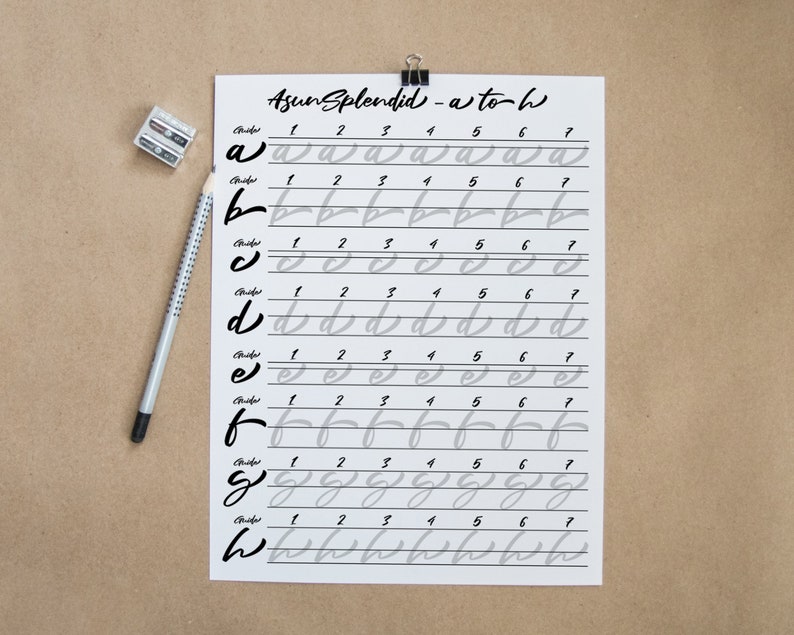 AsunSplendid - a to h
Guide 1 2 3 4 5 6 7
a a a a a a a a
Guide 1 2 3 4 5 6 7
b b b b b b b b
Guide 1 2 3 4 5 6 7
c c c c c c c c
Guide 1 2 3 4 5 6 7
d d d d d d d d
Guide 1 2 3 4 5 6 7
e e e e e e e e
Guide 1 2 3 4 5 6 7
f f f f f f f f
Guide 1 2 3 4 5 6 7
g g g g g g g g
Guide 1 2 3 4 5 6 7
h h h h h h h h